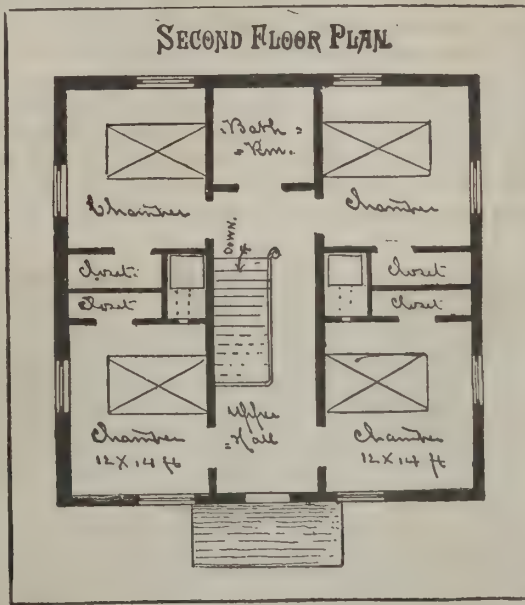 SECOND FLOOR PLAN.
Bath
Rm.
Chamber
Chamber
DOWN.
Closet
Closet
Closet
Closet
Upper
Hall
Chamber
12 X 14 ft
Chamber
12 X 14 ft